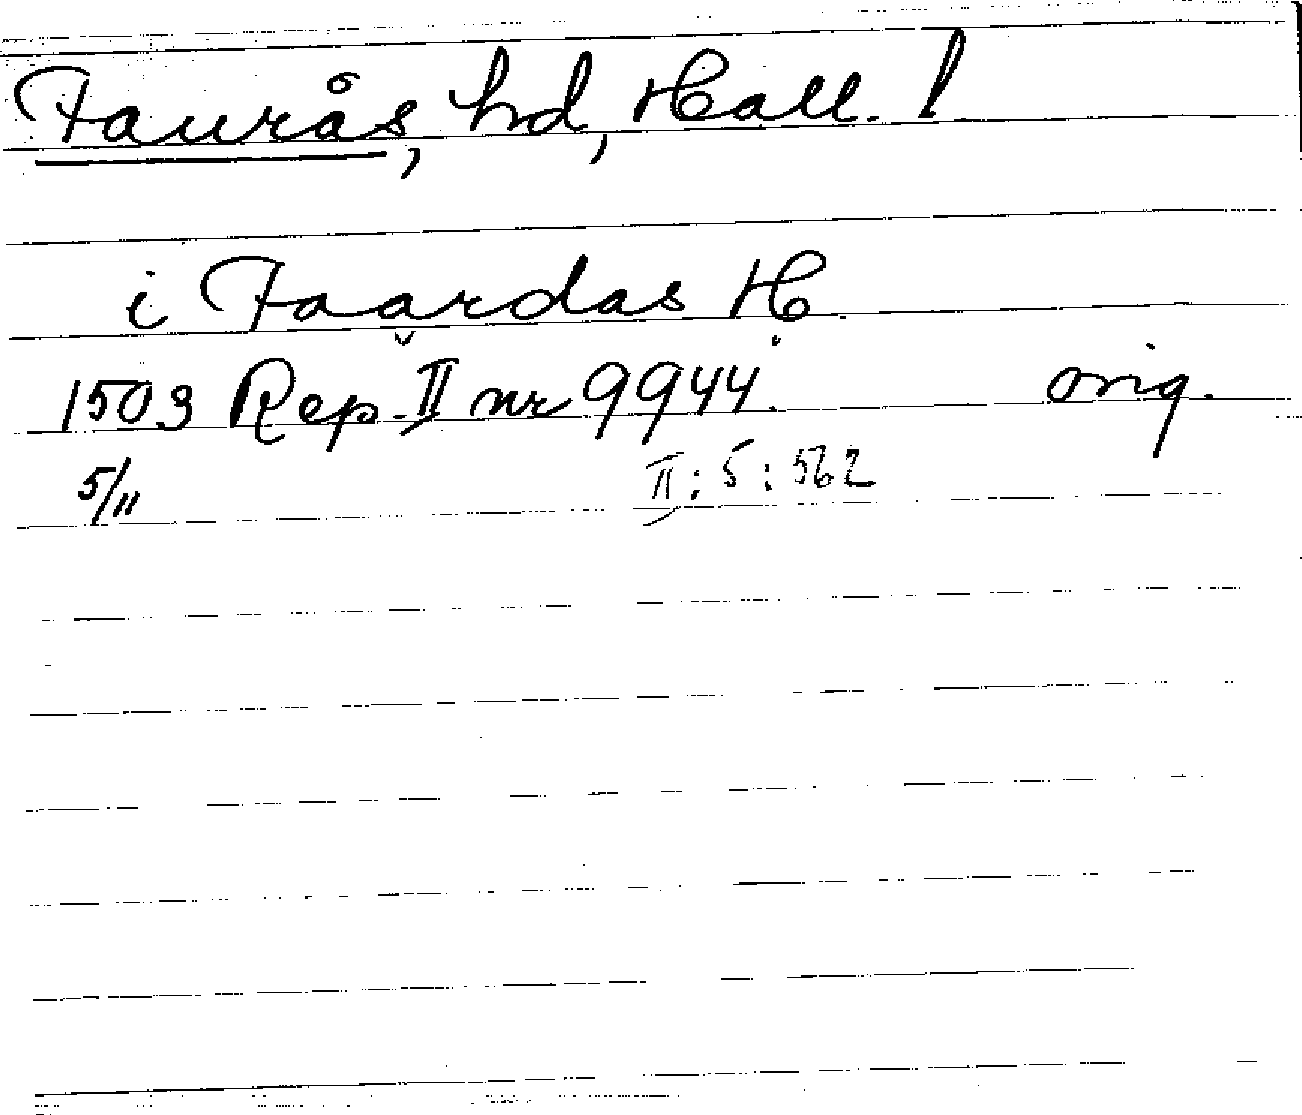 Faurås, hd, Hall. l
i Faardas H
1503 Rep. II nr 9944. orig.
5/11 II:5:562